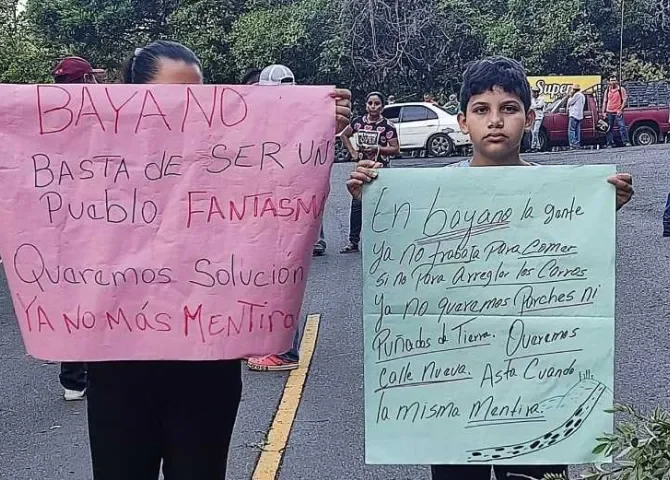 BAYANO
BASTA de SER UN
Pueblo FANTASM
Queremos Solución
YA NO MÁS MENTIRA
En bayano la gente
ya no trabaja Para Comer
si no Para Arreglar los Carros
ya no queremos Parches ni
Puñados de Tierra. Queremos
calle Nueva. Asta Cuando
la misma Mentira.
Super